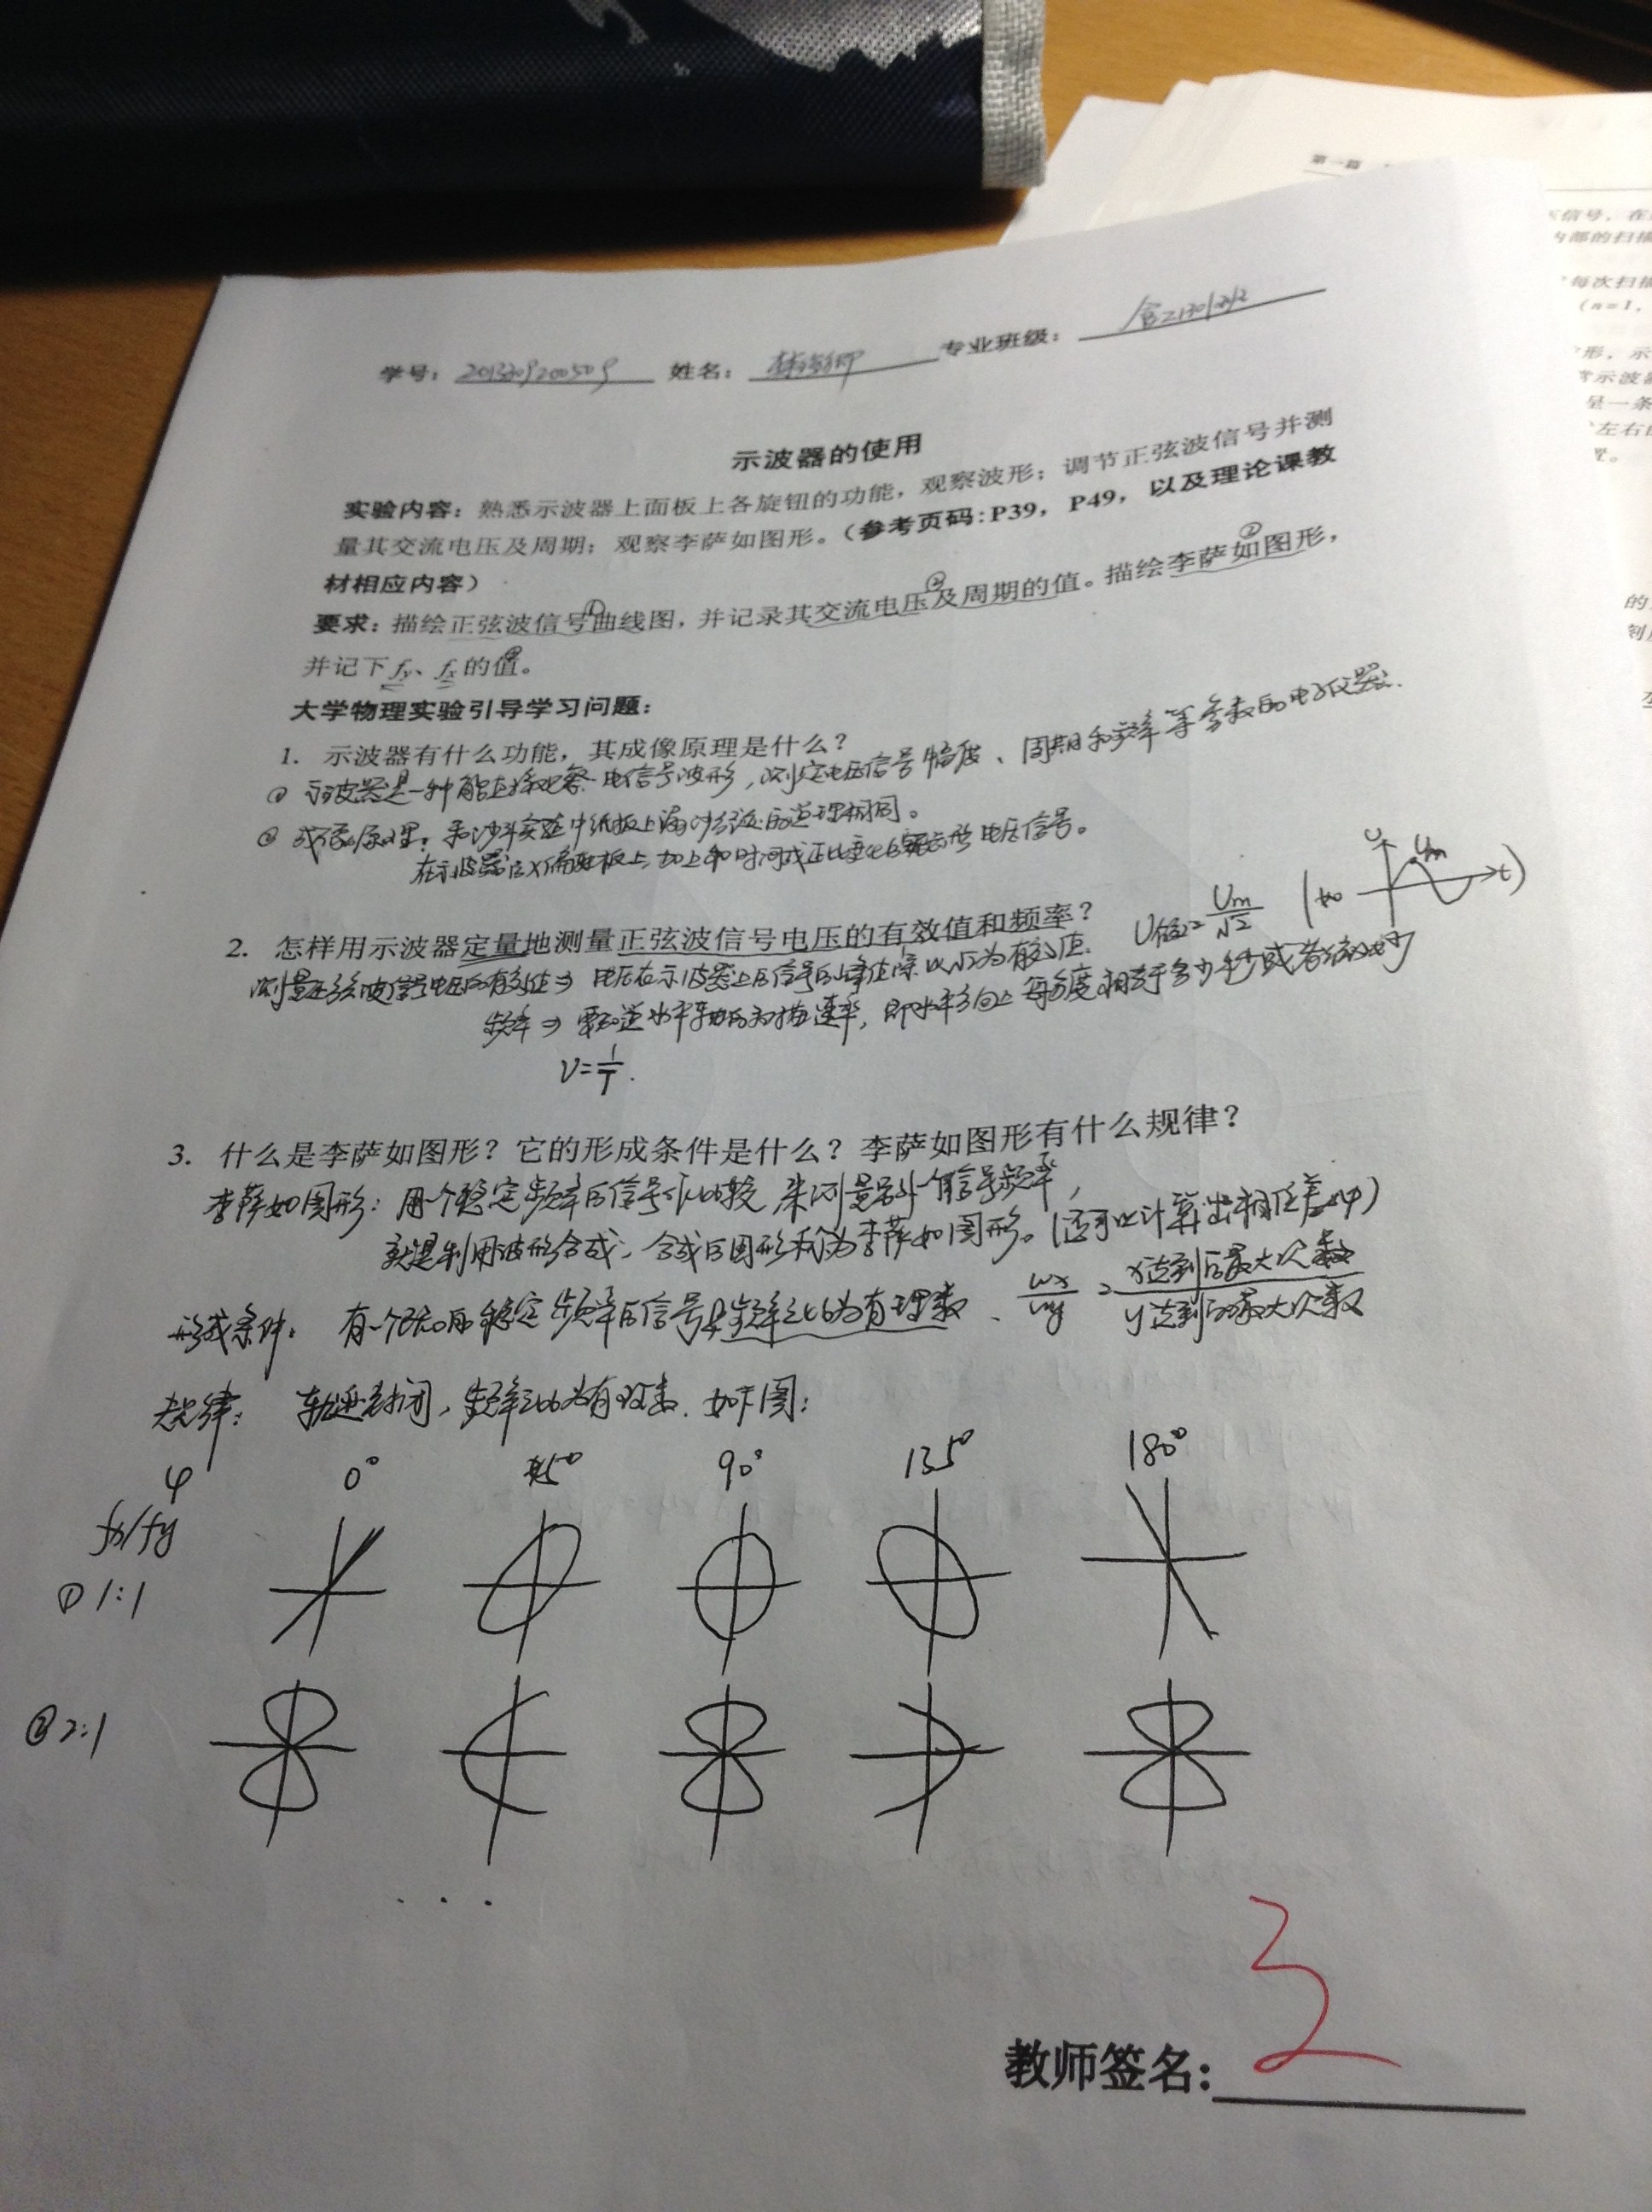 第一篇
学号: 2013309200509 姓名: 专业班级:
示波器的使用
实验内容: 熟悉示波器上面板上各旋钮的功能, 观察波形; 调节正弦波信号并测
量其交流电压及周期; 观察李萨如图形。(参考页码:P39, P49, 以及理论课教
材相应内容)
要求: 描绘正弦波信号曲线图, 并记录其交流电压及周期的值。描绘李萨如图形,
并记下 fy、fx 的值。
大学物理实验引导学习问题:
1. 示波器有什么功能, 其成像原理是什么?
① 示波器是一种能直接观察电信号波形, 测定电压信号幅度、周期和频率等参数的电子仪器.
② 成像原理: 和沙斗实验中纸板上漏沙的道理相同。
在示波器的X偏转板上, 加上和时间成正比变化的锯齿形电压信号。
2. 怎样用示波器定量地测量正弦波信号电压的有效值和频率?
测量正弦波信号电压的有效值⇒ 电压在示波器上的信号的峰值除以√2为有效值. U有效=Um/√2 (如 U Um t)
频率⇒ 要知道水平轴的扫描速率, 即水平方向上每刻度相当于多少秒或者
ν=1/T.
3. 什么是李萨如图形? 它的形成条件是什么? 李萨如图形有什么规律?
李萨如图形: 用一个稳定频率的信号作比较来测量另外一个信号频率,
就是利用波形合成, 合成的图形称为李萨如图形。(还可以计算出相位差Δφ)
形成条件: 有一个已知的稳定频率的信号且频率之比为有理数、 ωx/ωy = x达到的最大次数/y达到的最大次数
规律: 轨迹封闭, 频率之比为有理数. 如下图:
φ 0° 45° 90° 135° 180°
fx/fy
① 1:1
② 2:1
...
教师签名: